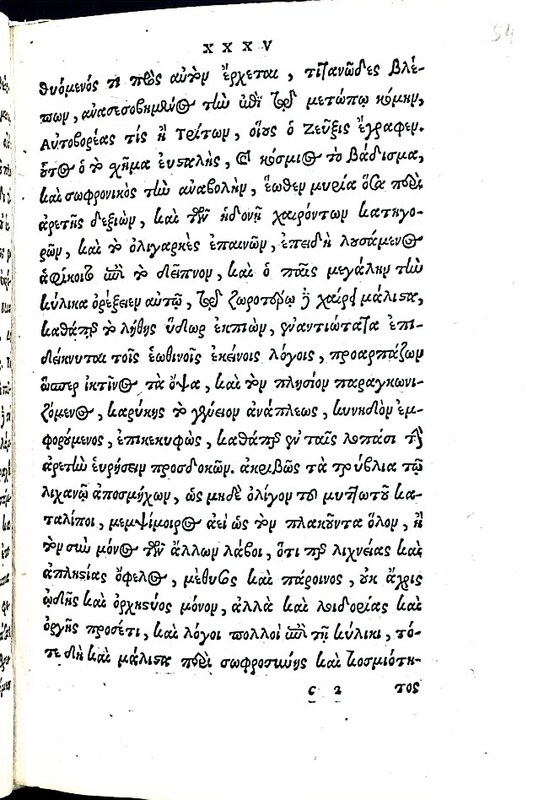 XXXV
54
θυόμενός τι πρὸς αὐτὸν ἔρχεται, τιτανῶδες βλέ-
πων, ἀνασεσοβημένος τὴν ἐπὶ τῷ μετώπῳ κόμην,
Αὐτοβορέας τίς ἢ Τρίτων, οἵους ὁ Ζεῦξις ἔγραφεν.
οὗτος ὁ τὸ χῆμα ἐυσταλὴς, καὶ κόσμιος τὸ βάδισμα,
καὶ σωφρονικὸς τὴν ἀναβολὴν, ἕωθεν μυρία ὅσα περὶ
ἀρετῆς δεξιὼν, καὶ τῶν ἡδονῇ χαιρόντων κατηγο-
ρῶν, καὶ τὸ ὀλιγαρκὲς ἐπαινῶν, ἐπειδὴ λουσάμενος
ἀφίκοιτο ἐπὶ τὸ δεῖπνον, καὶ ὁ παῖς μεγάλην τὴν
κύλικα ὀρέξειεν αὐτῷ, τῷ ζωροτέρῳ δὲ χαίρει μάλιστα,
καθάπερ τὸ λήθης ὕδωρ ἐκπιὼν, ἐναντιώτατα ἐπι-
δείκνυται τοῖς ἑωθινοῖς ἐκείνοις λόγοις, προαρπάζων
ὥσπερ ἰκτῖνος τὰ ὄψα, καὶ τὸν πλησίον παραγκωνι-
ζόμενος, καρύκης τὸ γένειον ἀνάπλεως, κυνηδὸν ἐμ-
φορούμενος, ἐπικεκυφὼς, καθάπερ ἐν ταῖς λοπάσι τὴν
ἀρετὴν ἑυρήσειν προσδοκῶν. ἀκριβῶς τὰ τρύβλια τῷ
λιχανῷ ἀποσμήχων, ὡς μηδὲ ὀλίγον τοῦ μυττωτοῦ κα-
ταλίποι, μεμψίμοιρος ἀεὶ ὡς τὸν πλακοῦντα ὅλον, ἢ
τὸν σιῶ μόνος τῶν ἄλλων λάβοι, ὅτι περ λιχνείας καὶ
ἀπληστίας ὄφελος, μέθυσος καὶ πάροινος, οὐκ ἄχρις
ᾠδῆς καὶ ὀρχηστύος μόνον, ἀλλὰ καὶ λοιδορίας καὶ
ὀργῆς προσέτι, καὶ λόγοι πολλοὶ ἐπὶ τῇ κύλικι, τό-
τε δὴ καὶ μάλιστα περὶ σωφροσύνης καὶ κοσμιότη-
c 2 τος